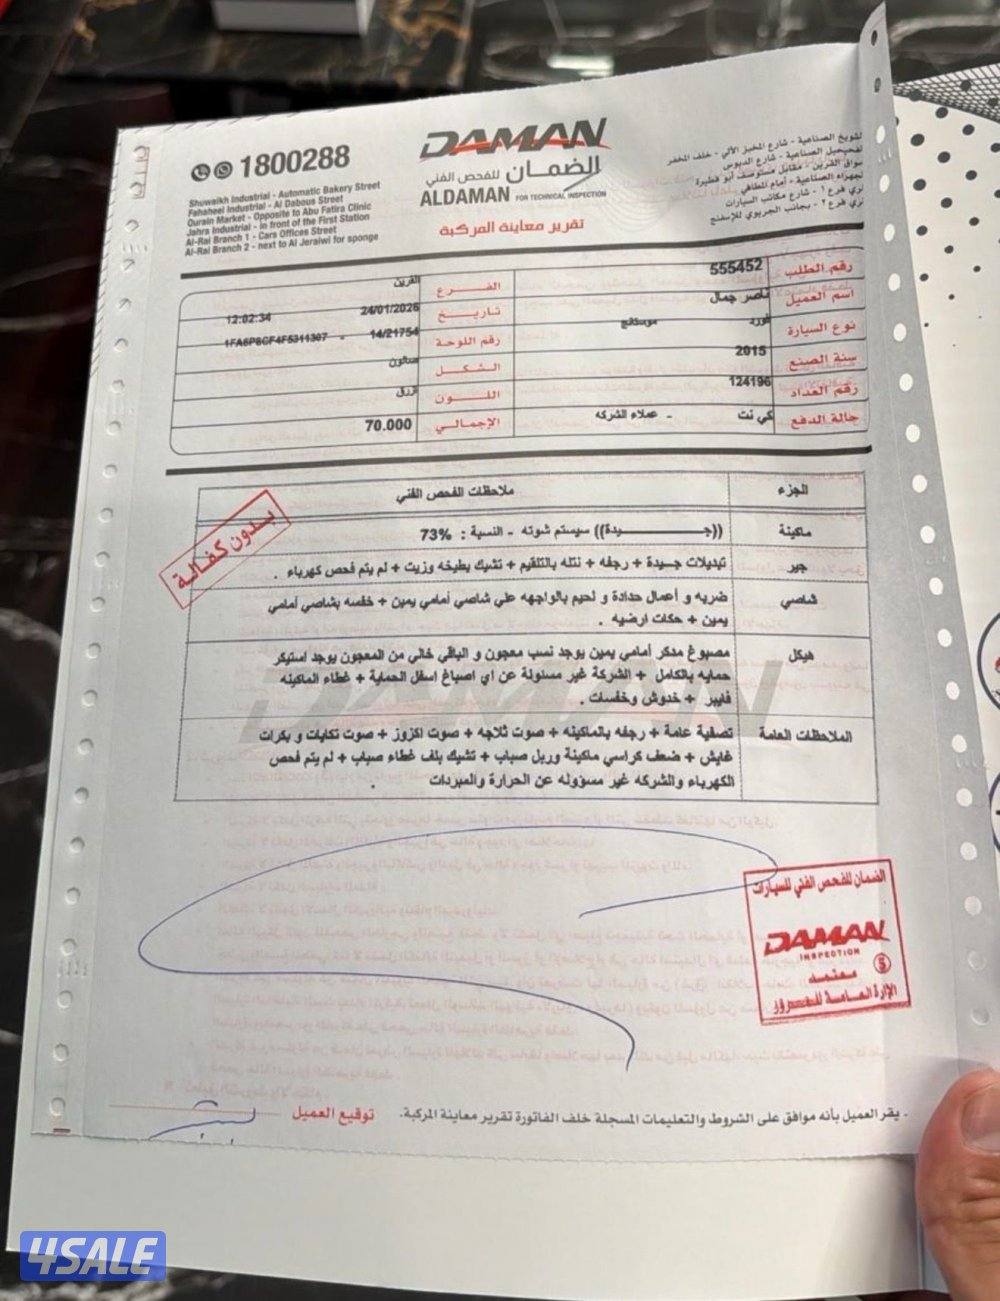 1800288
Shuwaikh Industrial - Automatic Bakery Street
Fahaheel Industrial - Al Dabous Street
Qurain Market - Opposite to Abu Fatira Clinic
Jahra Industrial - in front of the First Station
Al-Rai Branch 1 - Cars Offices Street
Al-Rai Branch 2 - next to Al Jeraiwi for sponge
DAMAN
الضمان للفحص الفني
ALDAMAN FOR TECHNICAL INSPECTION
تقرير معاينة المركبة
الشويخ الصناعية - شارع المخبز الآلي - خلف المخفر
الفحيحيل الصناعية - شارع الدبوس
سوق القرين - مقابل مستوصف أبو فطيرة
الجهراء الصناعية - أمام المطافي
الري فرع ١ - شارع مكاتب السيارات
الري فرع ٢ - بجانب الجريوي للإسفنج
رقم الطلب 555452 الفرع القرين
اسم العميل ناصر جمال تاريخ 24/01/2026 12:02:34
نوع السيارة فورد موستانج رقم اللوحة 14/21754 - 1FA6P8CF4F5311307
سنة الصنع 2015 الشكل صالون
رقم العداد 124196 اللون ازرق
حالة الدفع كي نت - عملاء الشركه الإجمالي 70.000
الجزء ملاحظات الفحص الفني
بدون كفالة
ماكينة ((جـــــيدة)) سيستم شوته - النسبة : 73%
جير تبديلات جـيدة + رجفه + نتله بالتلقيم + تشيك بطيخه وزيت + لم يتم فحص كهرباء .
شاصي ضربه و أعمال حدادة و لحيم بالواجهه علي شاصي أمامي يمين + خفسه بشاصي أمامي
يمين + حكات ارضيه .
هيكل مصبوغ مدكر أمامي يمين يوجد نسب معجون و الباقي خالي من المعجون يوجد استيكر
حمايه بالكامل + الشركة غير مسئولة عن اي اصباغ اسفل الحماية + غطاء الماكينه
فايبر + خدوش وخفسات .
الملاحظات العامة تصفية عامة + رجفه بالماكينه + صوت ثلاجه + صوت اكزوز + صوت تكايات و بكرات
غايش + ضعف كراسي ماكينة وربل صباب + تشيك بلف غطاء صباب + لم يتم فحص
الكهرباء والشركه غير مسؤوله عن الحرارة والمبردات .
الضمان للفحص الفني للسيارات
DAMAN
INSPECTION
معتمد 5
الإدارة العامة للمرور
. يقر العميل بأنه موافق على الشروط والتعليمات المسجلة خلف الفاتورة تقرير معاينة المركبة. توقيع العميل
4SALE